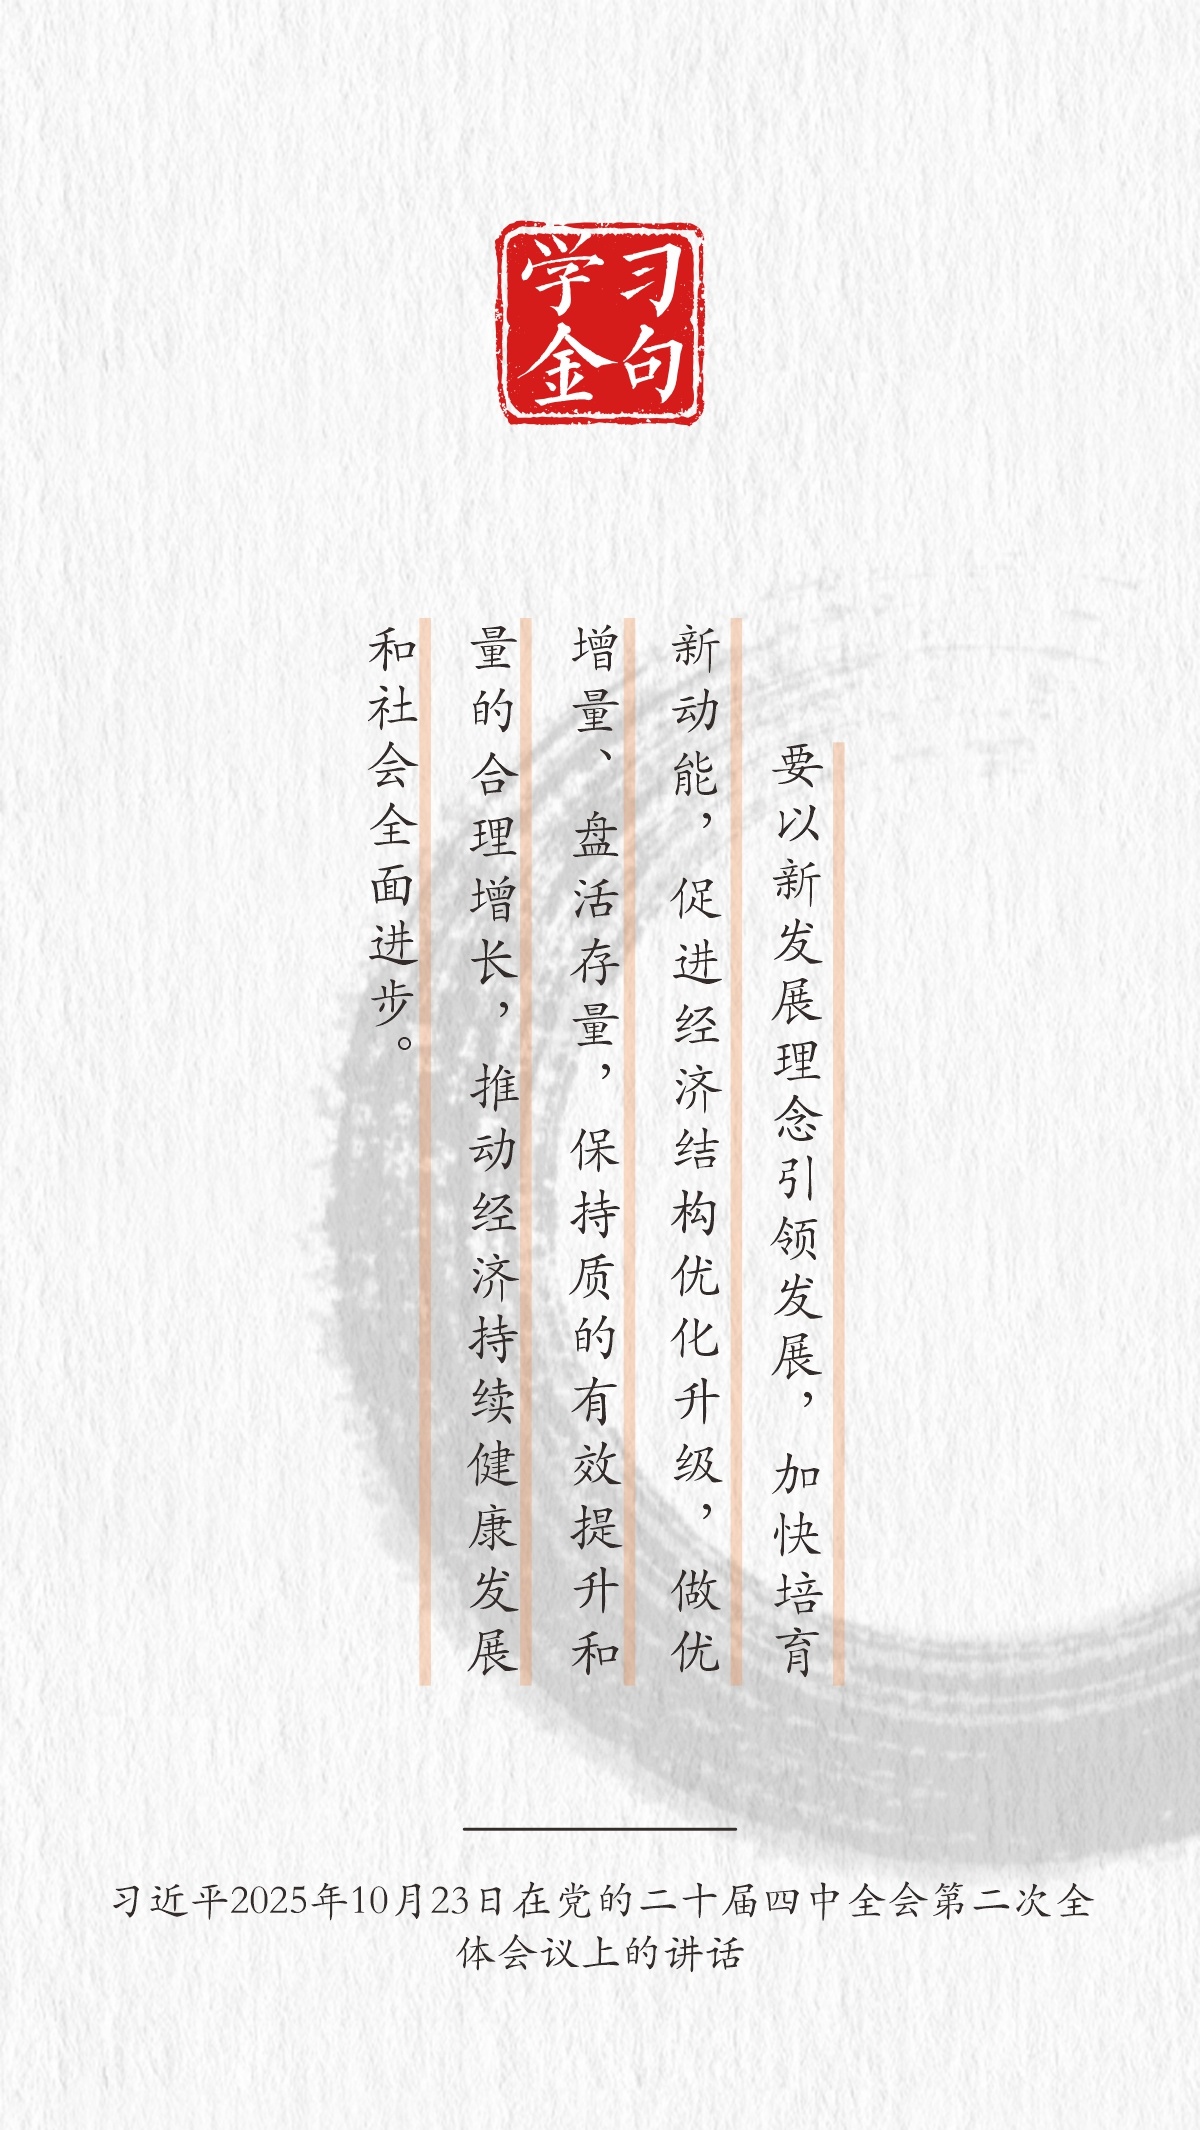 学习
金句
要以新发展理念引领发展，加快培育
新动能，促进经济结构优化升级，做优
增量、盘活存量，保持质的有效提升和
量的合理增长，推动经济持续健康发展
和社会全面进步。
习近平2025年10月23日在党的二十届四中全会第二次全
体会议上的讲话